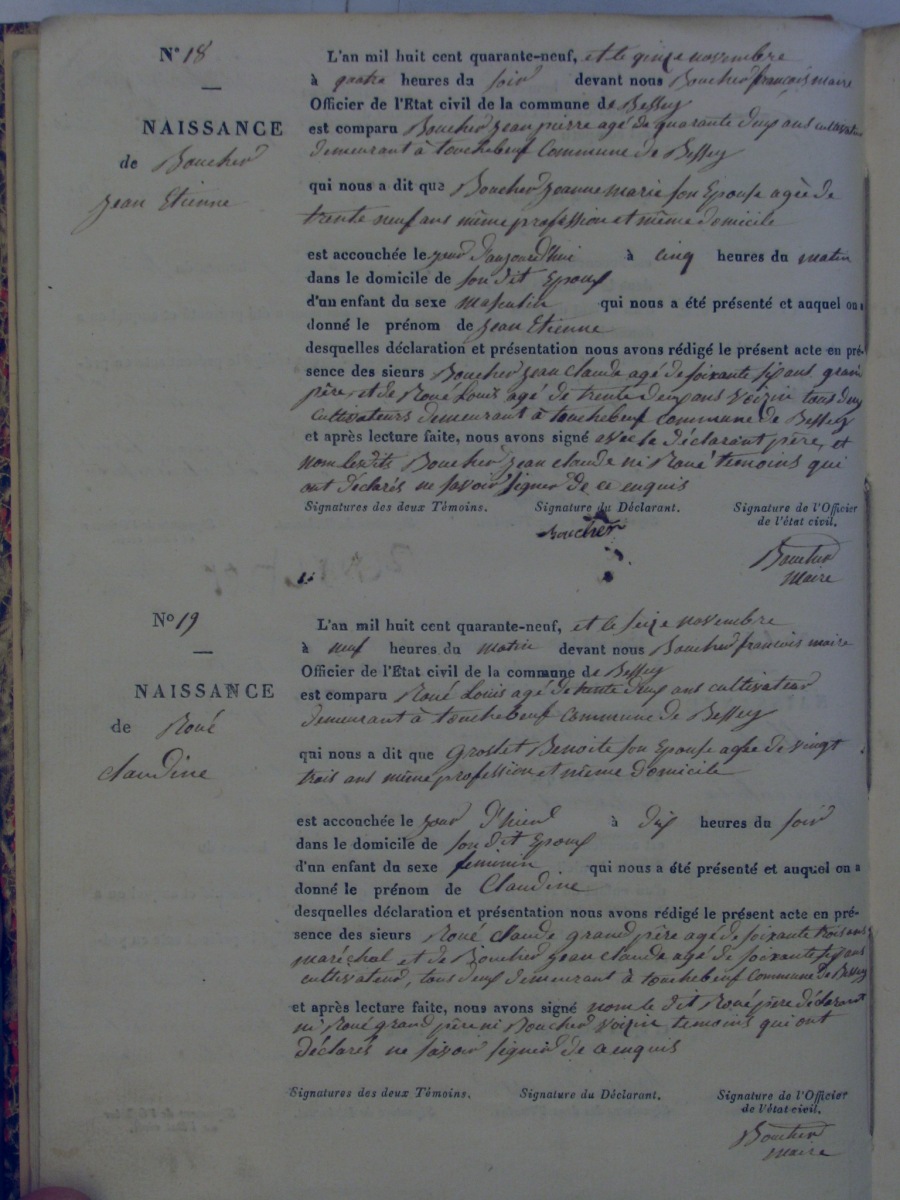 N° 18
NAISSANCE
de Boucher
Jean Etienne
L'an mil huit cent quarante-neuf, et le quinze novembre
à quatre heures du soir devant nous Boucher françois maire
Officier de l'Etat civil de la commune de Bessey
est comparu Boucher Jean pierre agé de quarante deux ans cultivateur
demeurant à touchebeuf Commune de Bessey
qui nous a dit que Boucher Jeanne marie son Epouse agée de
trente neuf ans même profession et même domicile
est accouchée le jour d'aujourd'hui à cinq heures du matin
dans le domicile de son dit Epoux
d'un enfant du sexe masculin qui nous a été présenté et auquel on a
donné le prénom de Jean Etienne
desquelles déclaration et présentation nous avons rédigé le présent acte en pré-
sence des sieurs Boucher Jean Claude agé de soixante six ans grand
père, et de Roué Louis agé de trente deux ans voizin tous deux
cultivateurs demeurant à touchebeuf Commune de Bessey
et après lecture faite, nous avons signé avec le déclarant père, et
nom lesdits Boucher Jean claude ni Roué temoins qui
ont déclarés ne savoir signer de ce enquis
Signatures des deux Témoins. Signature du Déclarant. Signature de l'Officier
de l'état civil.
Boucher
Boucher
Maire
N° 19
NAISSANCE
de Roué
Claudine
L'an mil huit cent quarante-neuf, et le seize novembre
à neuf heures du matin devant nous Boucher francois maire
Officier de l'Etat civil de la commune de Bessey
est comparu Roué Louis agé de trente deux ans cultivateur
demeurant à touchebeuf Commune de Bessey
qui nous a dit que Grostet Benoite son Epouse agée de vingt
trois ans même profession et même domicile
est accouchée le jour d'hier à dix heures du soir
dans le domicile de son dit Epoux
d'un enfant du sexe feminin qui nous a été présenté et auquel on a
donné le prénom de Claudine
desquelles déclaration et présentation nous avons rédigé le présent acte en pré-
sence des sieurs Roué Claude grand père agé de soixante trois ans
maréchal et de Boucher Jean claude agé de soixante six ans
cultivateur, tous deux demeurant à touchebeuf Commune de Bessey
et après lecture faite, nous avons signé nom le dit Roué père déclarant
ni Roué grand père ni Boucher voizin temoins qui ont
déclarés ne savoir signer de ce enquis
Signatures des deux Témoins. Signature du Déclarant. Signature de l'Officier
de l'état civil.
Boucher
maire